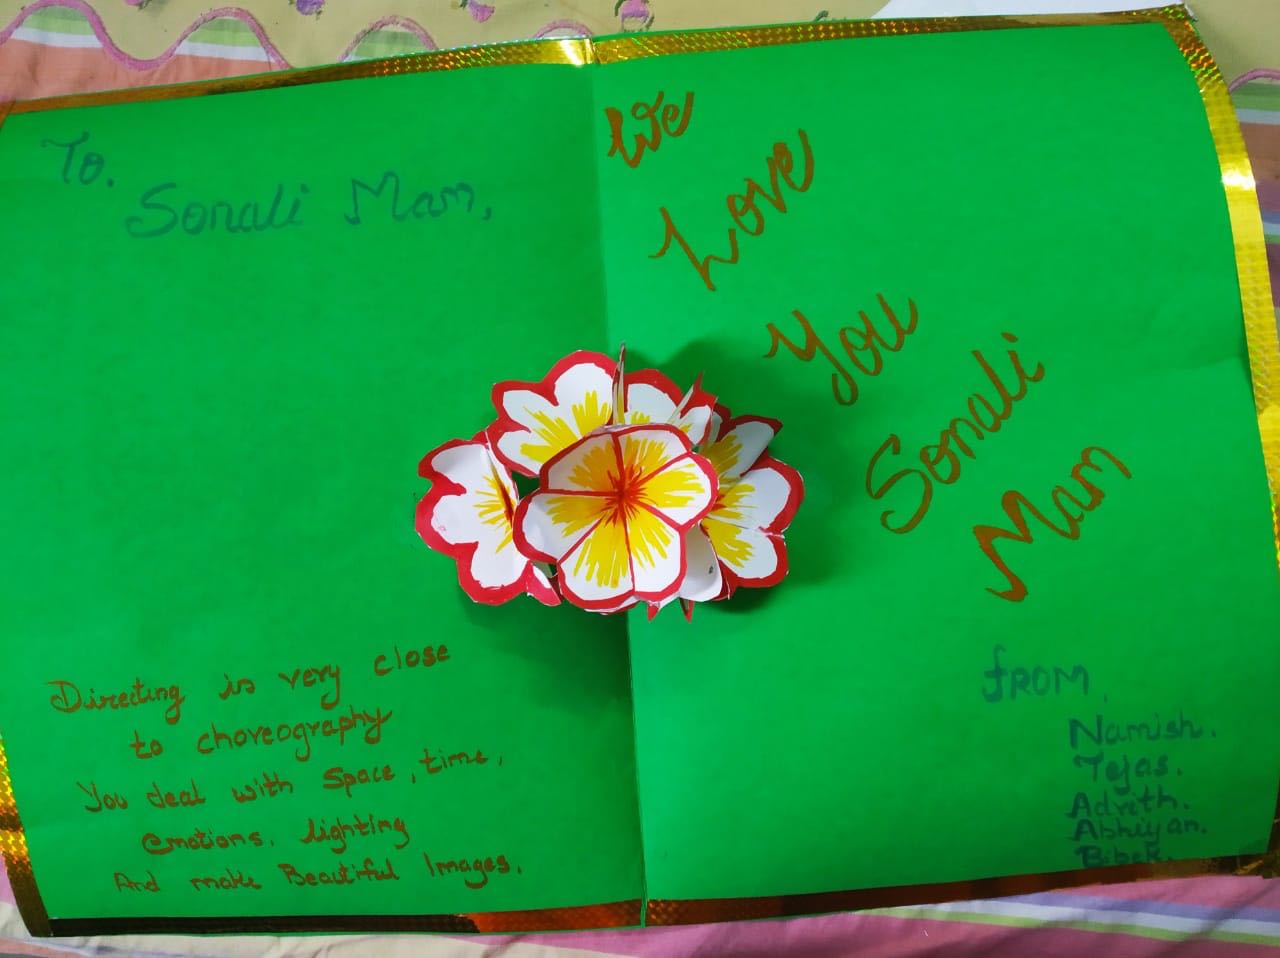 To.
Sonali Mam,
Directing is very close
to choreography
You deal with space, time,
Emotions, lighting
And make Beautiful Images.
We
Love
You
Sonali
Mam
from,
Namish.
Tejas.
Advith.
Abhiyan.
Bibek.